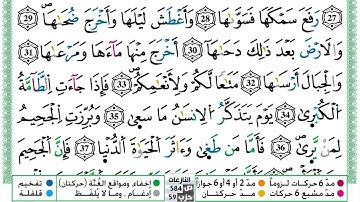 (27) رَفَعَ سَمْكَهَا فَسَوَّىٰهَا (28) وَأَغْطَشَ لَيْلَهَا وَأَخْرَجَ ضُحَىٰهَا (29)
وَالْأَرْضَ بَعْدَ ذَٰلِكَ دَحَىٰهَا (30) أَخْرَجَ مِنْهَا مَاءَهَا وَمَرْعَىٰهَا (31)
وَالْجِبَالَ أَرْسَىٰهَا (32) مَتَاعًا لَّكُمْ وَلِأَنْعَامِكُمْ (33) فَإِذَا جَاءَتِ الطَّامَّةُ
الْكُبْرَىٰ (34) يَوْمَ يَتَذَكَّرُ الْإِنسَانُ مَا سَعَىٰ (35) وَبُرِّزَتِ الْجَحِيمُ
(36) لِمَن يَرَىٰ فَأَمَّا مَن طَغَىٰ (37) وَءَاثَرَ الْحَيَاةَ الدُّنْيَا (38) فَإِنَّ الْجَحِيمَ
مدّ 6 حركات لزوماً مدّ 2 أو 4 أو 6 جوازاً
مدّ مشبع 6 حركات مدّ حركتان
النازعات
ص 584
حزب 59
إخفاء ومواقع الغُنَّة (حركتان) تفخيم
إدغام ، وما لا يُلفظ قلقلة